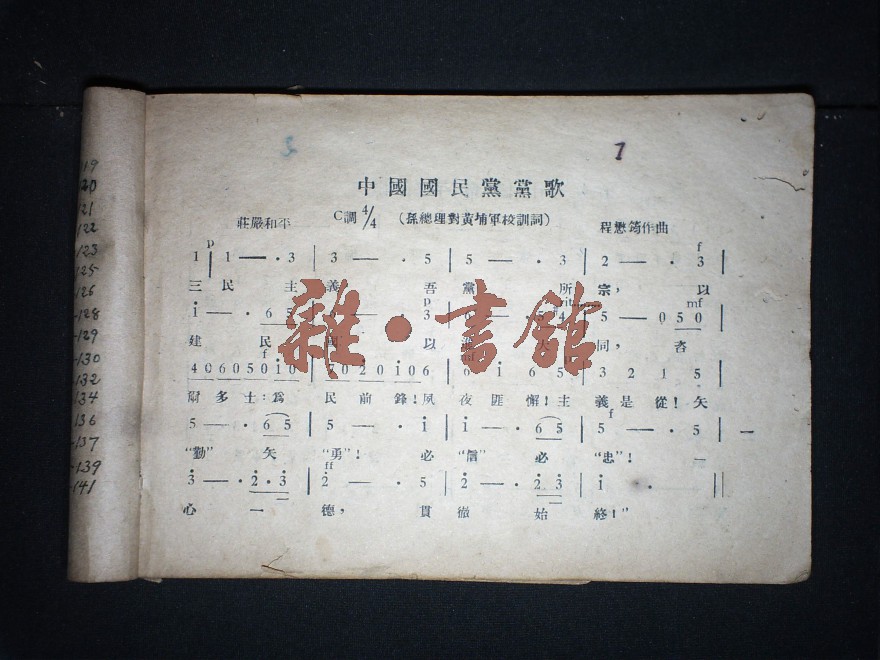 5 7
中國國民黨黨歌
莊嚴和平 C調 4/4 (孫總理對黃埔軍校訓詞) 程懋筠作曲
p f
1 | 1 — · 3 | 3 — · 5 | 5 — · 3 | 2 — · 3 |
三民主義吾黨所宗，以
p rit mf
建民國以大同，咨
f
4 0 6 0 5 0 i 0 | 7 0 2 0 i 0 6 | 6 · i 6 5 | 3 2 1 5
爾多士：爲民前鋒！夙夜匪懈！主義是從！矢
f
5 — · 6 5 | 5 — · i | i — · 6 5 | 5 — · 5 | —
“勤”矢“勇”！必“信”必“忠”！一
ff
3 — · 2 · 3 | 2 — · 5 | 2 — · 2 3 | i · ||
心一德，貫徹始終！”
雜·書館
119
120
121
122
-123
-125
-126
-128
-129
-130
-132
134
136
-137
-139
141